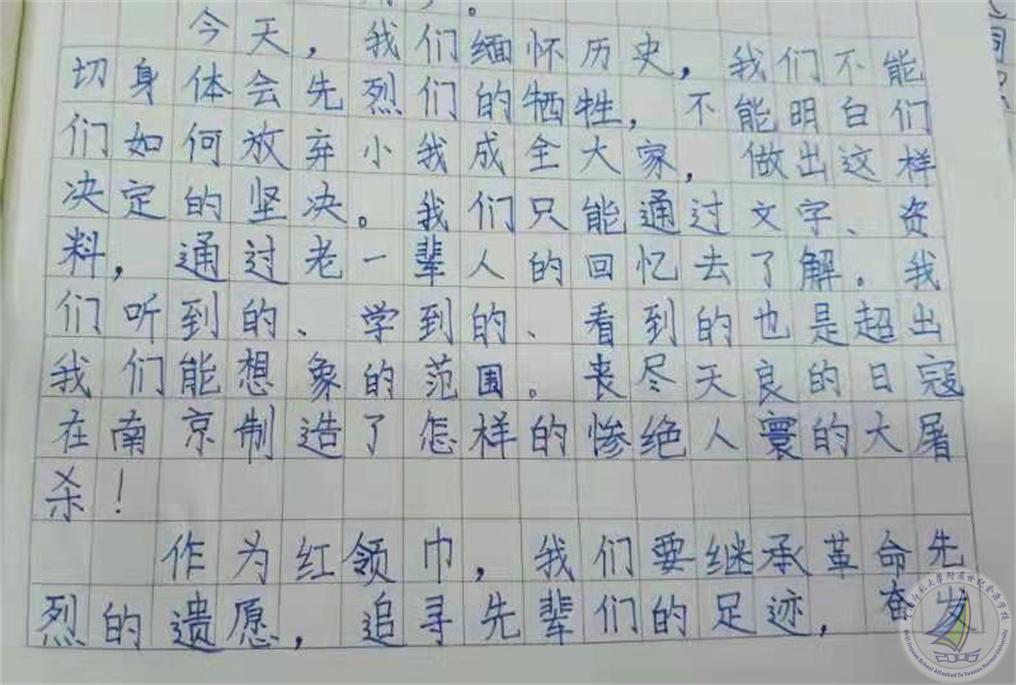 今天，我们缅怀历史，我们不能
切身体会先烈们的牺牲，不能明白们
们如何放弃小我成全大家，做出这样
决定的坚决。我们只能通过文字、资
料，通过老一辈人的回忆去了解。我
们听到的、学到的、看到的也是超出
我们能想象的范围。丧尽天良的日寇
在南京制造了怎样的惨绝人寰的大屠
杀！
作为红领巾，我们要继承革命先
烈的遗愿，追寻先辈们的足迹，奋发